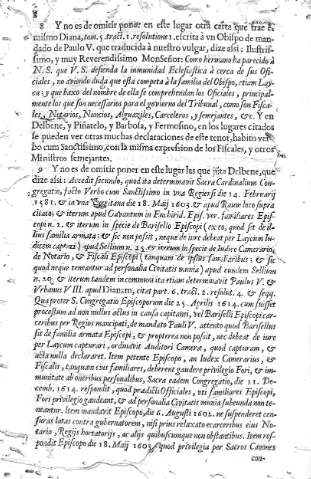 8 Y no es de omitir poner en este lugar otra carta que trae el
mismo Diana, tom. 5. tract. 1. resolutione 1. escrita à vn Obispo de man-
dado de Paulo V. que traducida à nuestro vulgar, dize assi: Ilustris-
simo, y muy Reverendissimo MonSeñor: Como hermano ha parecido à
N. S. que V. S. defienda la inmunidad Eclesiastica à cerca de sus Ofi-
ciales, no aviendo duda que esta competa à la familia del Obispo, etiam Lay-
ca: y que baxo del nombre de ella se comprehendan los Oficiales, principal-
mente los que son necessarios para el govierno del Tribunal, como son Fisca-
les, Notarios, Nuncios, Alguaziles, Carceleros, y semejantes, &c. Y en
Delbene, y Piñatelo, y Barbosa, y Fermosino, en los lugares citados
se pueden ver otras muchas declaraciones de este tenor, habito ver-
bo cum Sanctissimo, con la misma expression de los Fiscales, y otros
Ministros semejantes.
9 Y no es de omitir poner en este lugar las que jũta Delbene, que
dize assi: Accedit secundo, quod ita determinavit Sacra Cardinalium Con-
gregatio, facto Verbo cum Sanctissimo in vna Regiensi die 14. Februarij
1581. & in vna Eugitana die 18. Maij 1603. & apud Raun loco supra
citato; & iterum apud Gavantum in Enchirid. Epis. ver. familiares Epis-
copi n. 2. & iterum in specie de Barisello Episcopi (ex eo, quod sit de il-
lius familia armata: & sic non possit, neque de iure debeat per Laycum Iu-
dicem capi) apud Sellium n. 23. & iterum in specie de Iudice Camerario,
de Notario, & Fiscali Episcopi (tanquam de ipsius familiaribus: & sic
quod neque teneantur ad personalia Civitatis munia) apud eundem Sellium
n. 20. & iterum tandem in communi ita etiam determinavit Paulus V. &
Vrbanus VIII. apud Dianam, citat. part. 6. tract. 2. resolut. 4. & seqq.
Qua propter S. Congregatio Episcoporum die 25. Aprilis 1614. cum fuisset
processum ad non nullos actus in causa capitani, vel Bariselli Episcopi car-
ceribus per Regios mancipati, de mandato Pauli V. attento quod Barisellus
sit de familia armata Episcopi, & propterea non possit, nec debeat de iure
per Laycum capturari, ordinavit Auditori Camera, quod capturam, &
acta nulla declararet. Item petente Episcopo, an Iudex Camerarius, &
Fiscalis, tanquam eius familiares, deberent gaudere privilegio Fori, & im-
munitate ab oneribus personalibus, Sacra eadem Congregatio, die 11. De-
cemb. 1614. respondit, quod praedicti Officiales, vti familiares Episcopi,
Fori privilegio gaudeant, & ad personalia Civitatis munia subeunda non te-
neantur. Item mandavit Episcopo, die 6. Augusti 1602. ne suspenderet cen-
suras latas contra gubernatorem, nisi prius relaxato ex carceribus eius No-
tario, Regijs hortaturijs, ac alijs quibuscumque non obstantibus. Item res-
pondit Episcopo die 18. Maij 1603. quod privilegia per Sacros Canones
con-